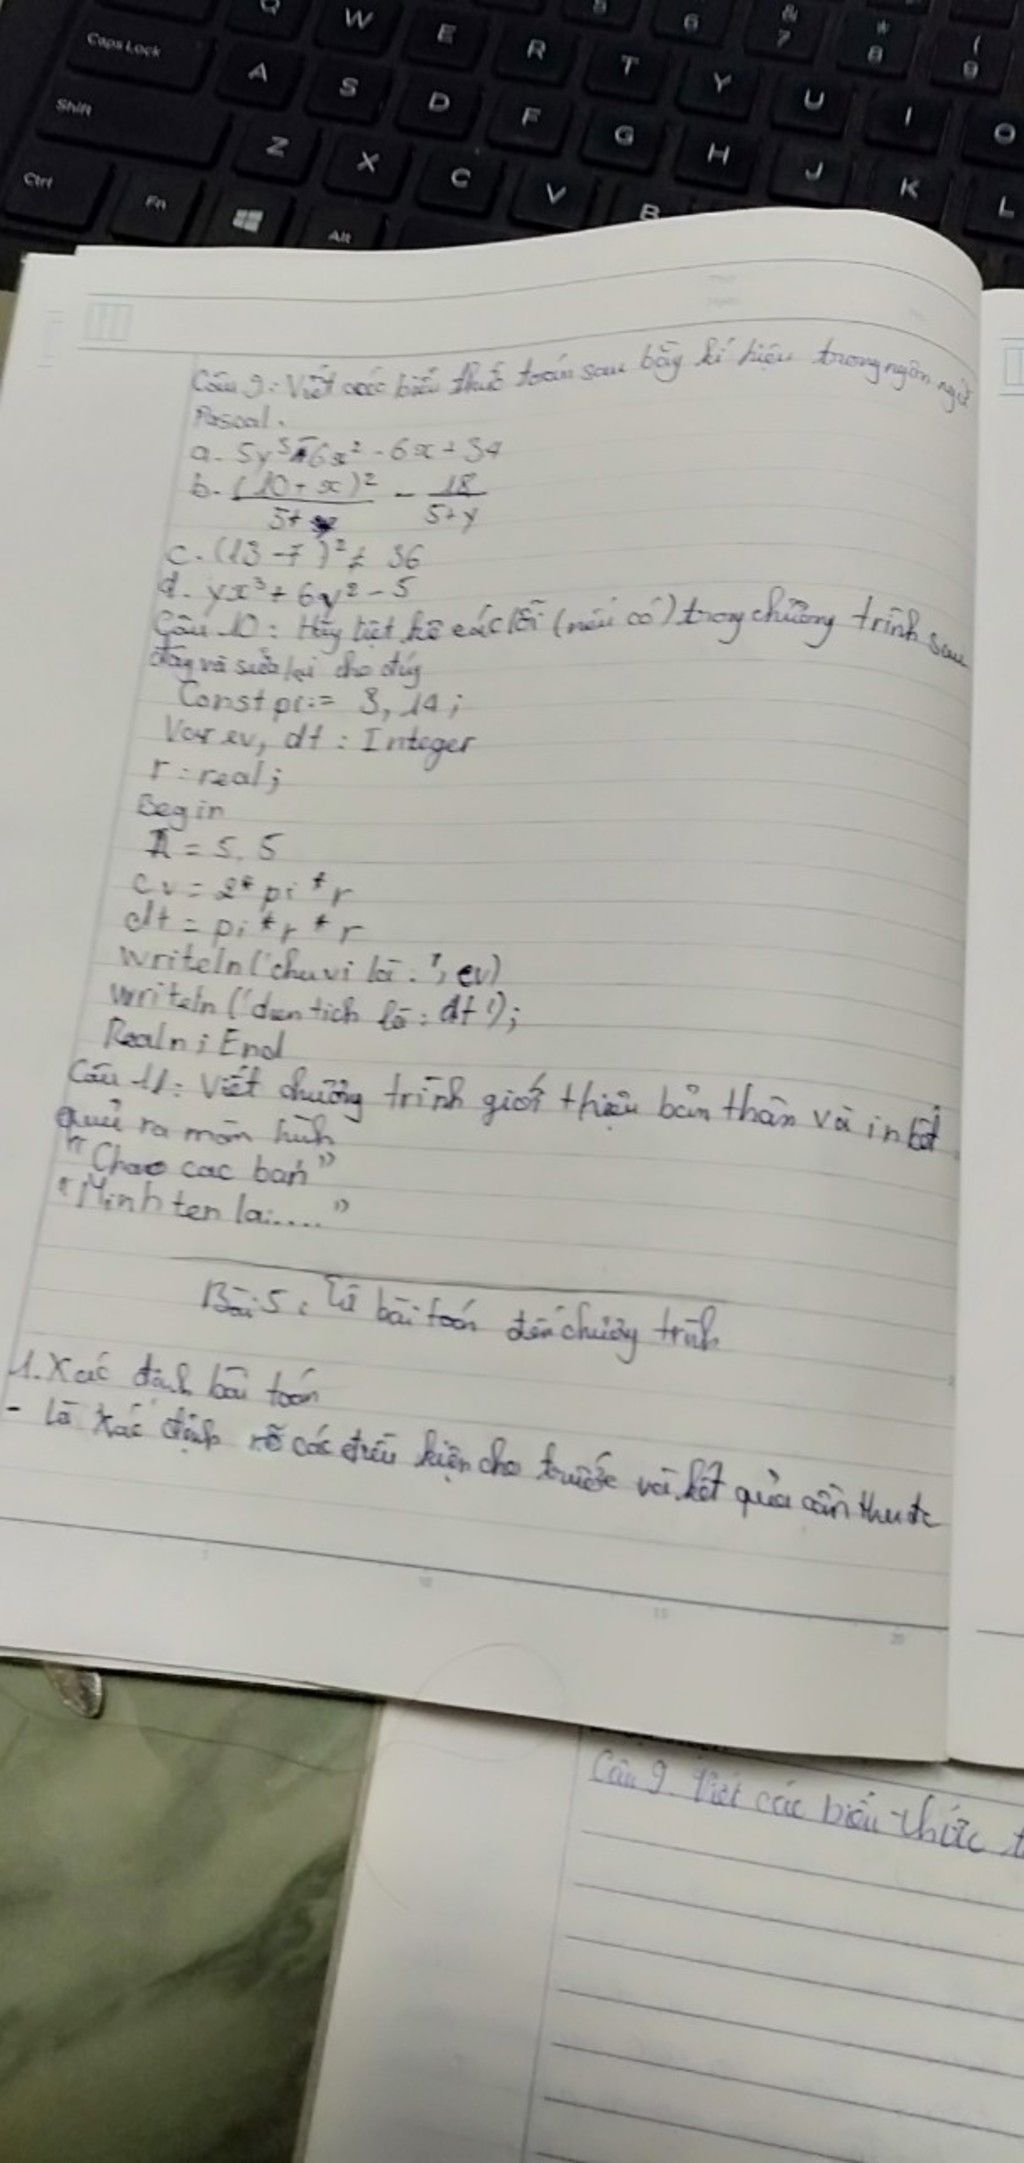 Q W E R T 5 6 & 7 * 8 ( 9
Caps Lock A S D F G Y U I O
Shift Z X C V B H J K L
Ctrl Fn Alt
Câu 9: Viết các biểu thức toán sau bằy kí hiệu trong ngôn ngữ
Pascal.
a. 5y³ + 6x² - 6x + 34
b. (10 + x)² / 5+ - 18 / 5+y
c. (13 - 7)² ≠ 36
d. yx³ + 6y² - 5
Câu 10: Hãy liệt kê các lỗi (nếu có) trong chương trình sau
đây và sửa lại cho đúg
Const pi:= 3,14;
Var cv, dt : Integer
r : real;
Begin
= 5,5
cv = 2* pi * r
dt = pi * r * r
writeln('chu vi là : ', cv)
writeln ('dien tich là : dt');
Realn; End
Câu 11: Viết chương trình giới thiệu bản thân và in kết
quả ra màn hình
"Chao cac ban"
"Minh ten la:...."
Bài 5: Từ bài toán đến chươg trình
1. Xác định bài toán
- là xác định rõ các điều kiện cho trước và kết quả cần thu đc
5 10 15 20
Câu 9. Viết các biểu thức t